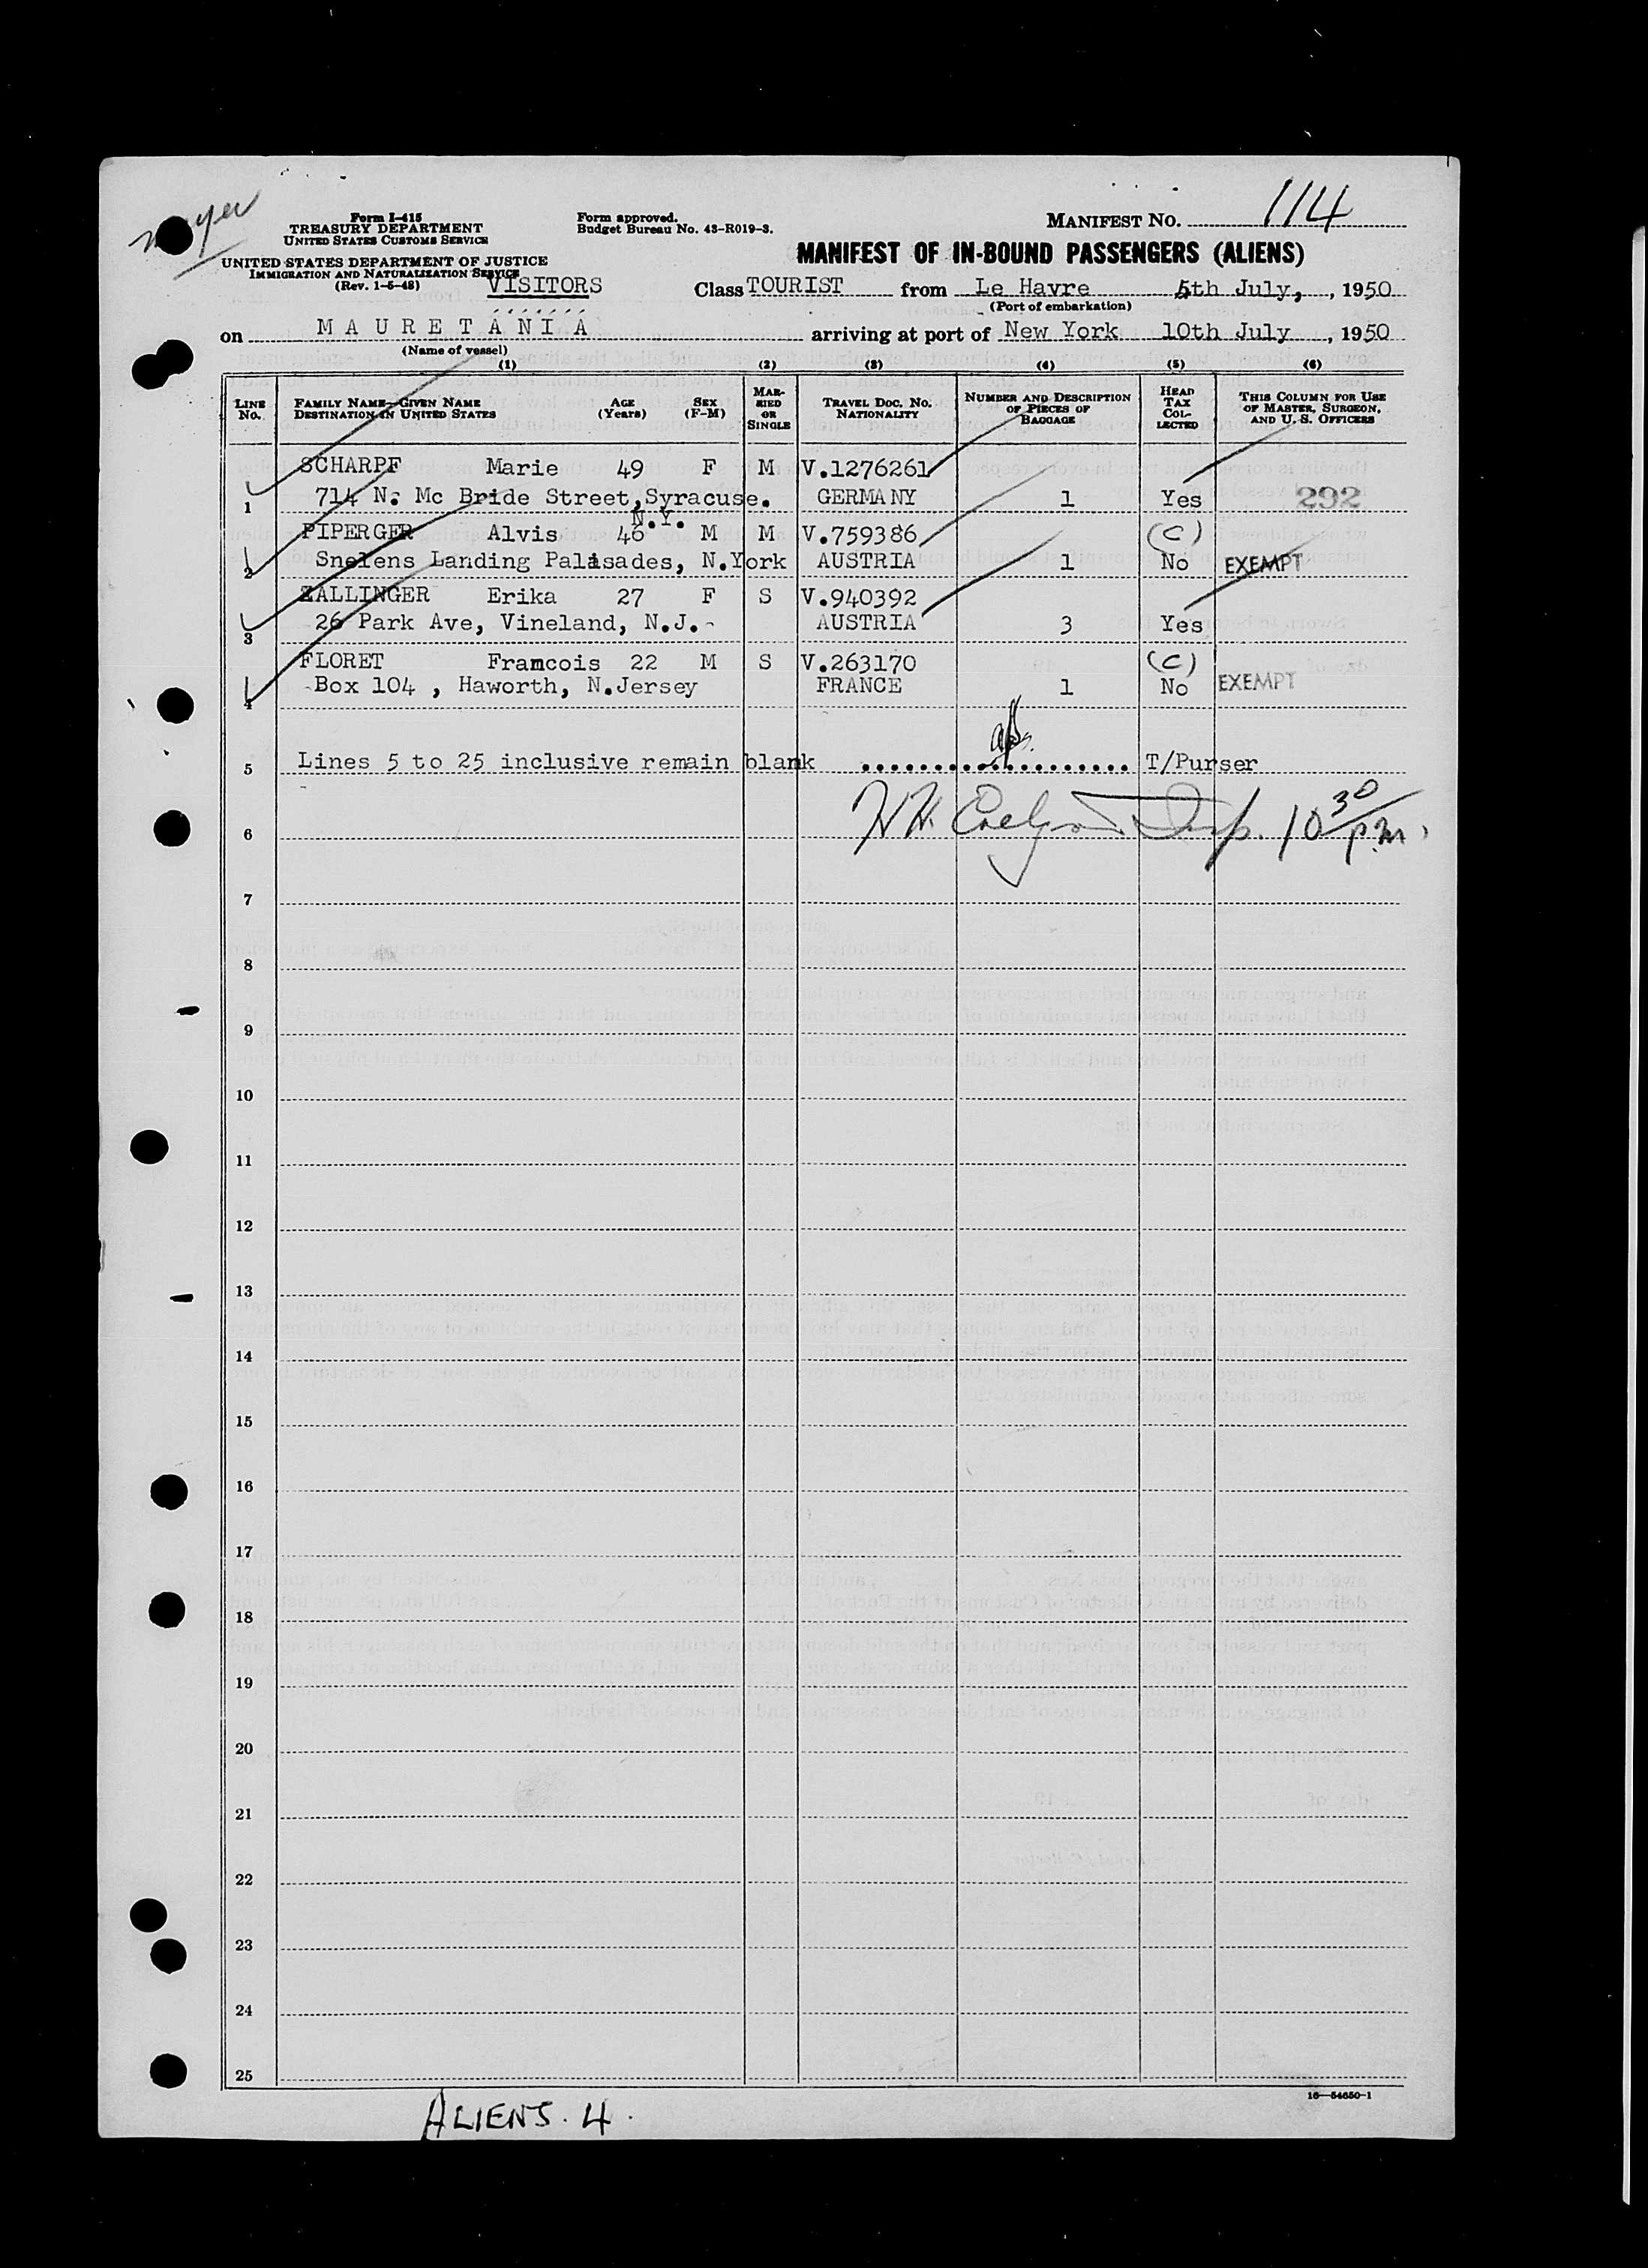 Form I-415
TREASURY DEPARTMENT
UNITED STATES CUSTOMS SERVICE
UNITED STATES DEPARTMENT OF JUSTICE
IMMIGRATION AND NATURALIZATION SERVICE
(Rev. 1-5-48)
VISITORS
Form approved.
Budget Bureau No. 43-R019-3.
MANIFEST NO. 114
MANIFEST OF IN-BOUND PASSENGERS (ALIENS)
Class TOURIST from Le Havre 5th July, , 1950
(Port of embarkation)
on MAURETANIA arriving at port of New York 10th July , 1950
(Name of vessel)
(1) (2) (3) (4) (5) (6)
LINE NO. FAMILY NAME—GIVEN NAME DESTINATION IN UNITED STATES AGE (Years) SEX (F-M) MARRIED OR SINGLE TRAVEL DOC. NO. NATIONALITY NUMBER AND DESCRIPTION OF PIECES OF BAGGAGE HEAD TAX COLLECTED THIS COLUMN FOR USE OF MASTER, SURGEON, AND U. S. OFFICERS
SCHARPF Marie 49 F M V.1276261
1 714 N. Mc Bride Street,Syracuse. GERMANY 1 Yes 292
N.Y.
PIPERGER Alvis 46 M M V.759386 (C)
2 Snelens Landing Palisades, N.York AUSTRIA 1 No EXEMPT
ZALLINGER Erika 27 F S V.940392
3 26 Park Ave, Vineland, N.J. AUSTRIA 3 Yes
FLORET Framcois 22 M S V.263170 (C)
4 Box 104 , Haworth, N.Jersey FRANCE 1 No EXEMPT
5 Lines 5 to 25 inclusive remain blank T/Purser
6 H.H. Insp. 10 30/p.m.
7
8
9
10
11
12
13
14
15
16
17
18
19
20
21
22
23
24
25
16—54650-1
ALIENS. 4.